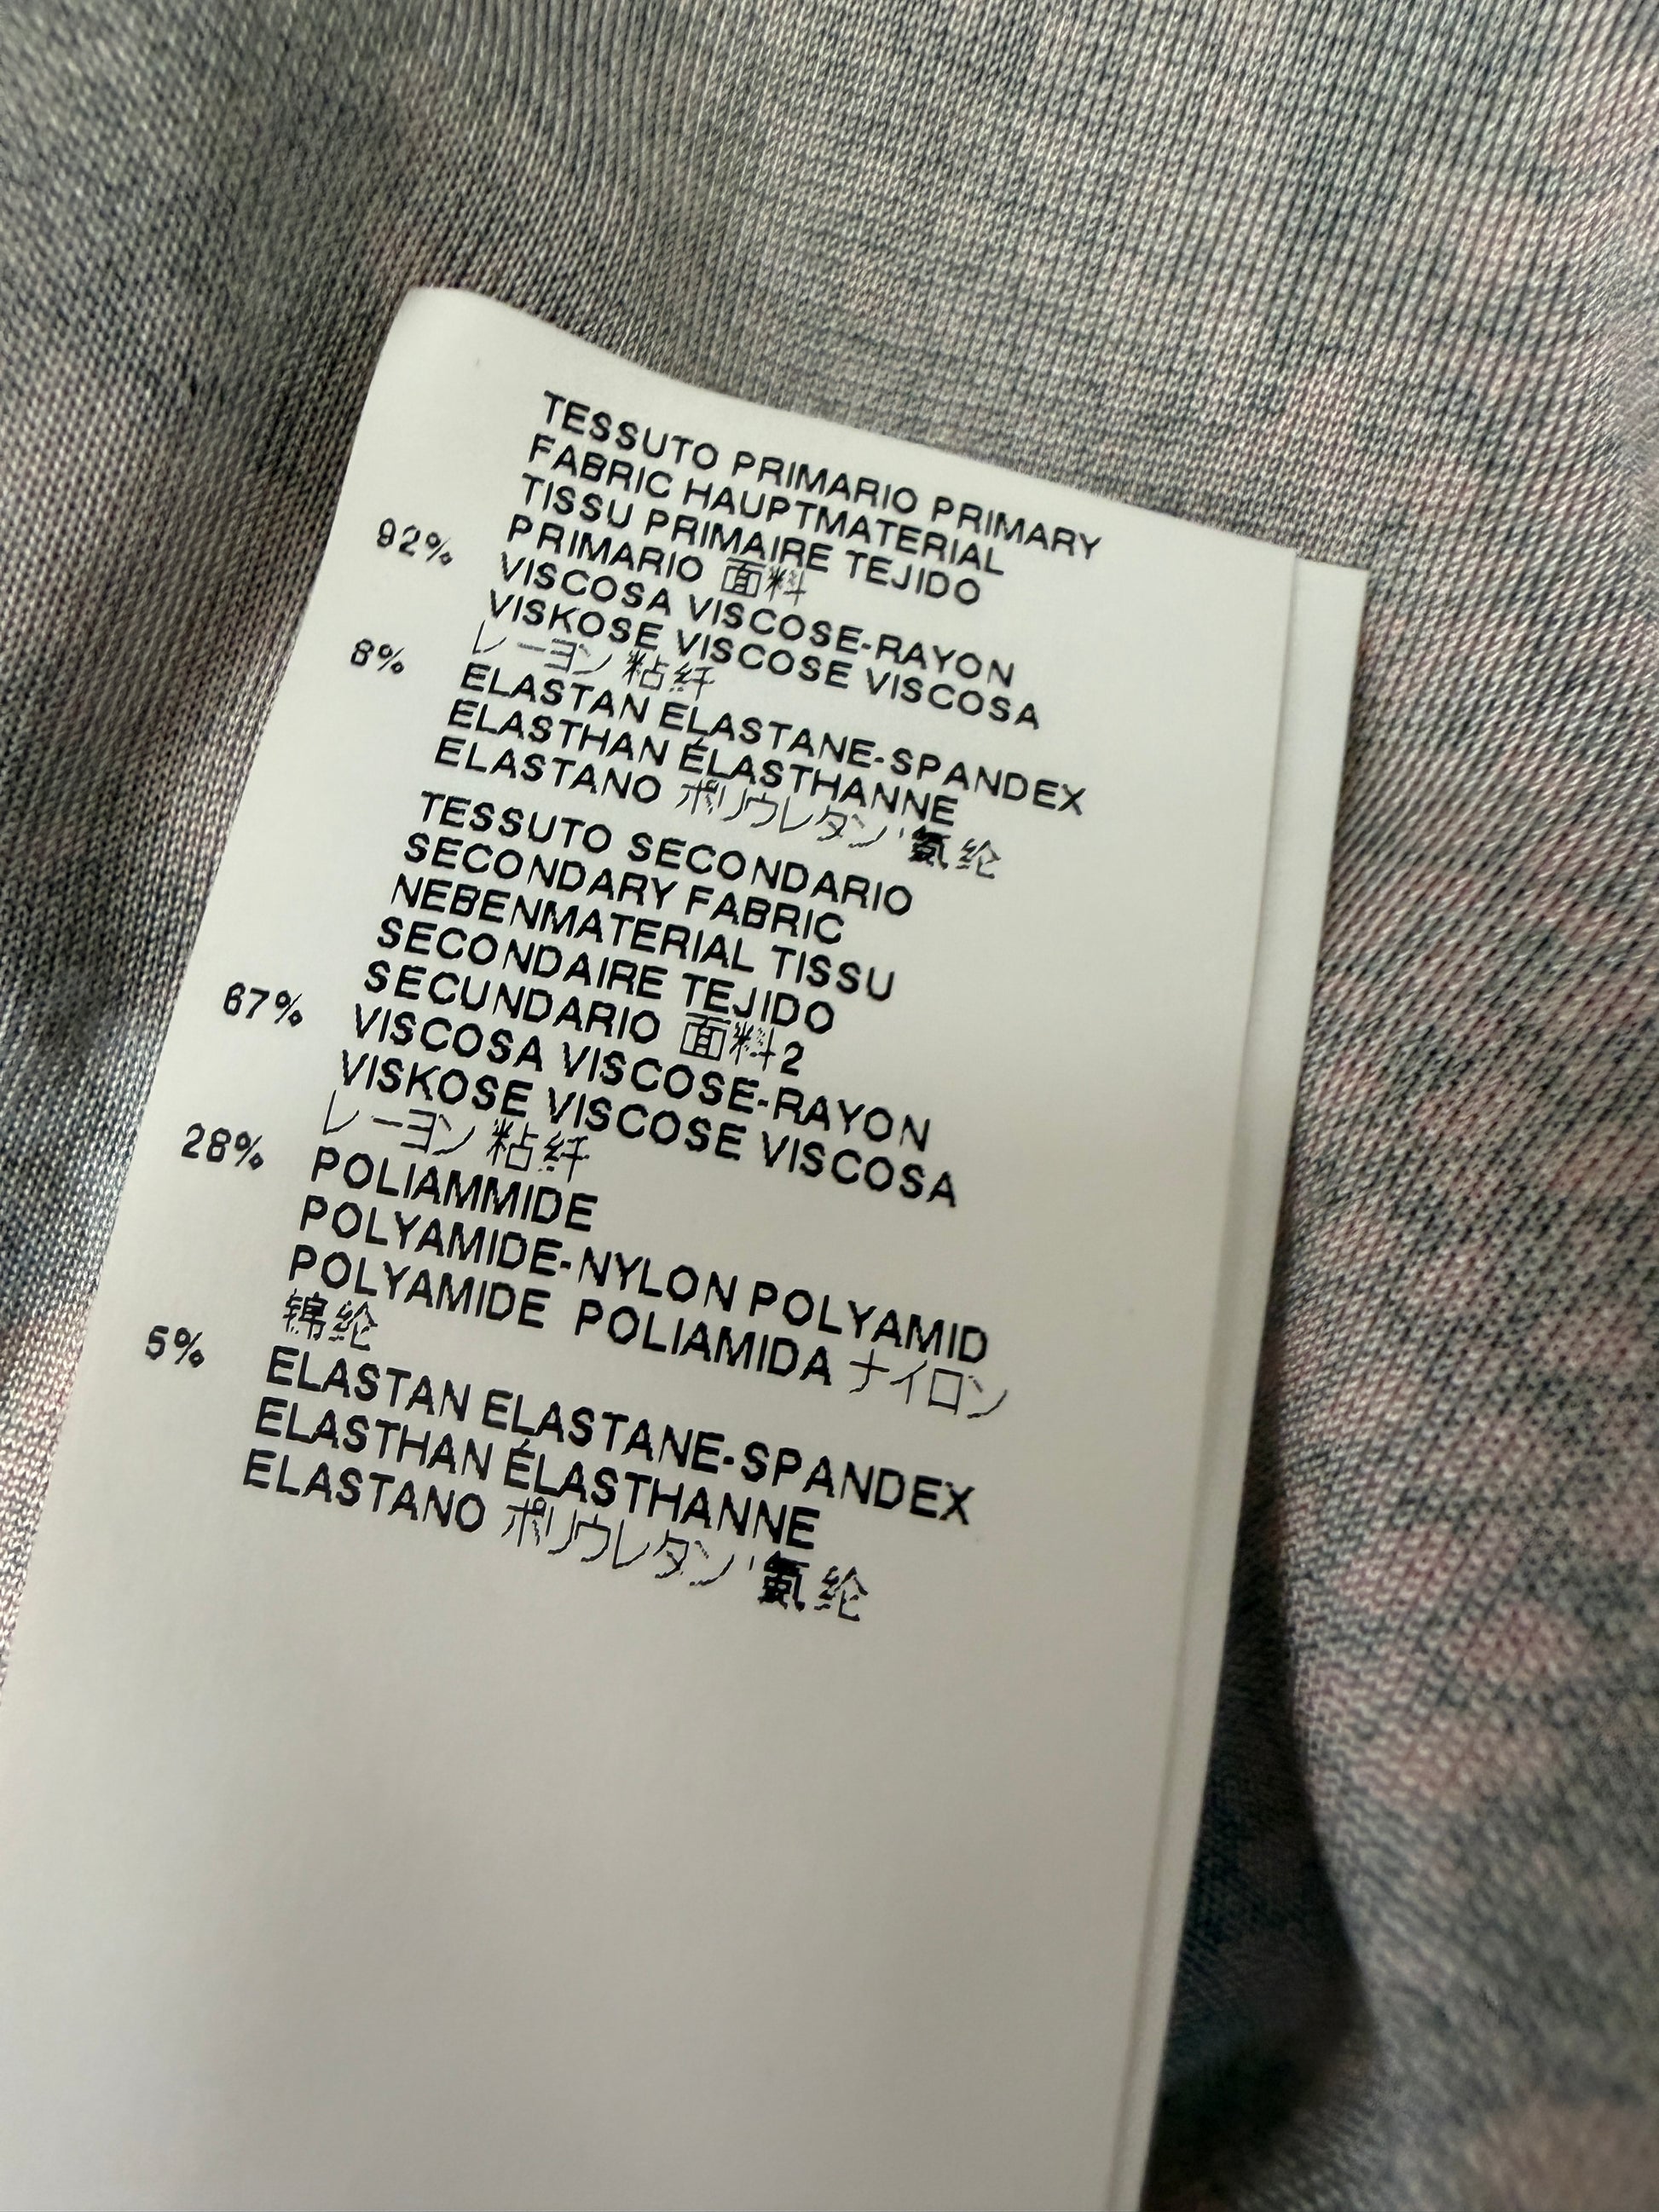 TESSUTO PRIMARIO PRIMARY
FABRIC HAUPTMATERIAL
TISSU PRIMAIRE TEJIDO
PRIMARIO 面料
92% VISCOSA VISCOSE-RAYON
VISKOSE VISCOSE VISCOSA
レーヨン 粘纤
8% ELASTAN ELASTANE-SPANDEX
ELASTHAN ÉLASTHANNE
ELASTANO ポリウレタン 氨纶
TESSUTO SECONDARIO
SECONDARY FABRIC
NEBENMATERIAL TISSU
SECONDAIRE TEJIDO
SECUNDARIO 面料2
67% VISCOSA VISCOSE-RAYON
VISKOSE VISCOSE VISCOSA
レーヨン 粘纤
28% POLIAMMIDE
POLYAMIDE-NYLON POLYAMID
POLYAMIDE POLIAMIDA ナイロン
锦纶
5% ELASTAN ELASTANE-SPANDEX
ELASTHAN ÉLASTHANNE
ELASTANO ポリウレタン 氨纶